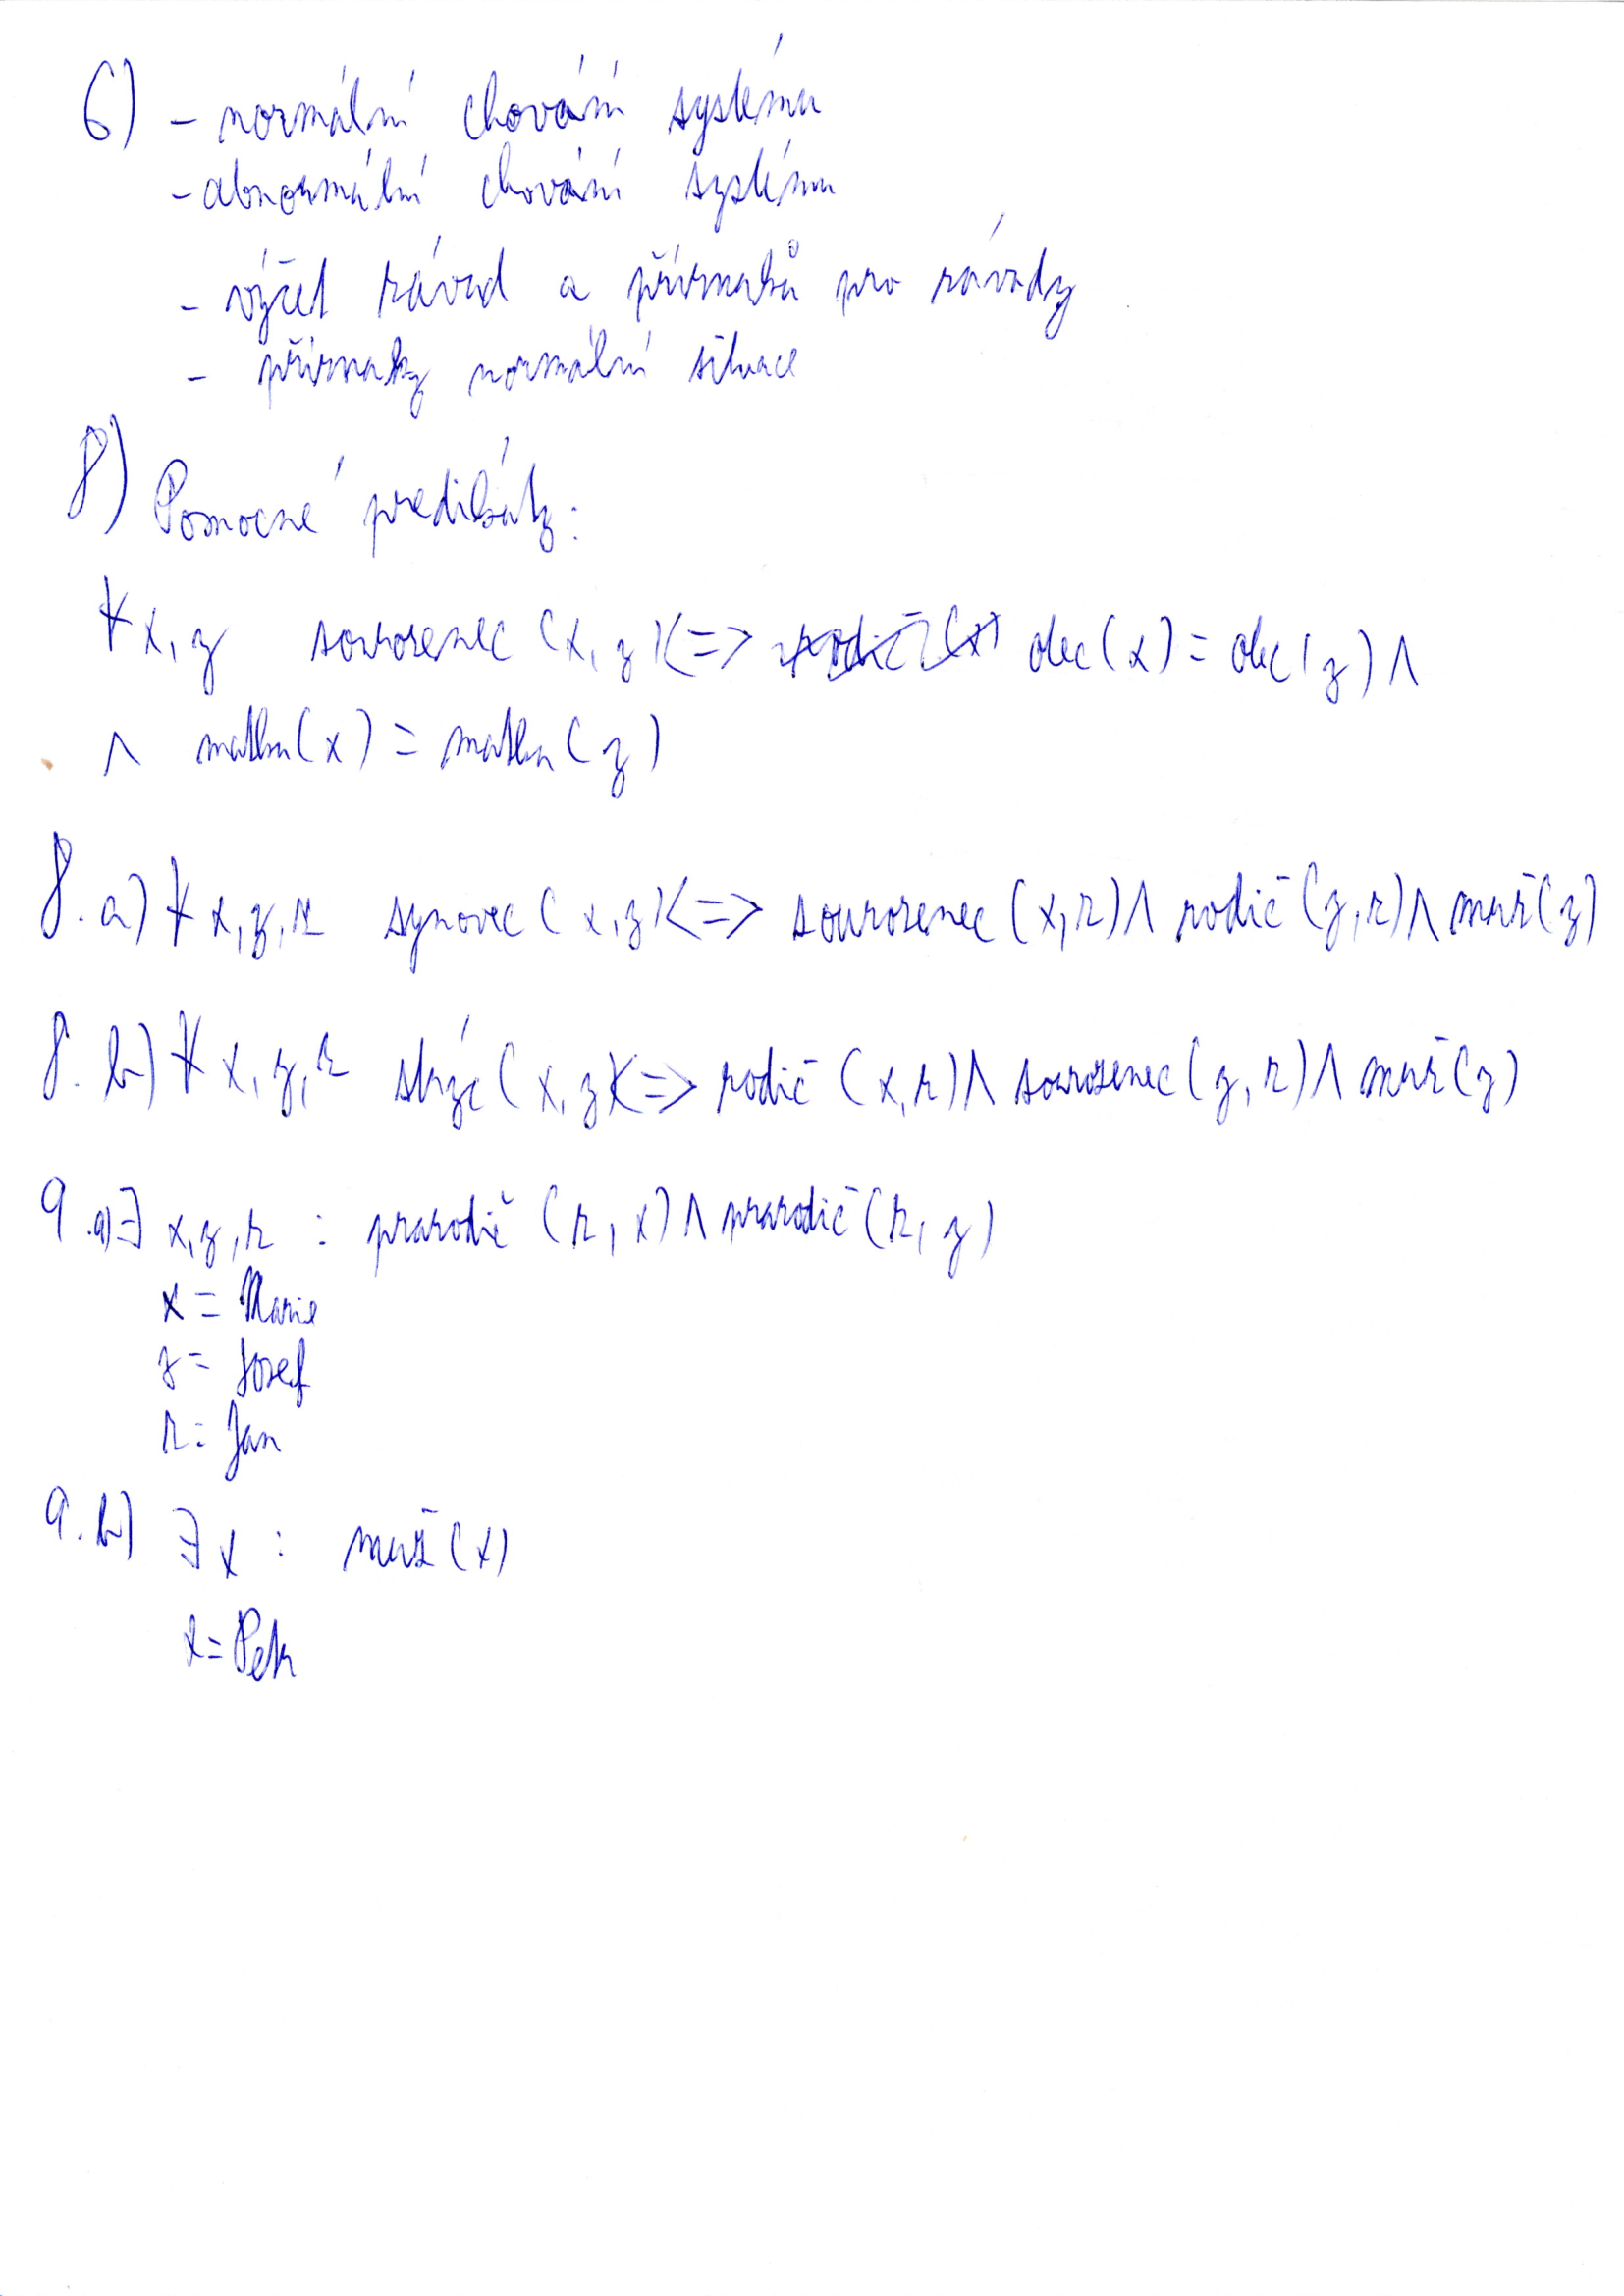 6) - normální chování systému
- abnormální chování systému
- výčet závad a příznaků pro závady
- příznaky normální situace
8) Pomocné predikáty:
∀ x, y sourozenec (x, y) <=> otec(x) = otec(y) ∧
∧ matka(x) = matka(y)
8. a) ∀ x, y, z synovec (x, y) <=> sourozenec (x, z) ∧ rodič (y, z) ∧ muž(y)
8. b) ∀ x, y, z strýc (x, y) <=> rodič (x, z) ∧ sourozenec (y, z) ∧ muž (y)
9. a) ∃ x, y, z : prarodič (z, x) ∧ prarodič (z, y)
x = Marie
y = Josef
z = Jan
9. b) ∃ x : muž (x)
x = Petr